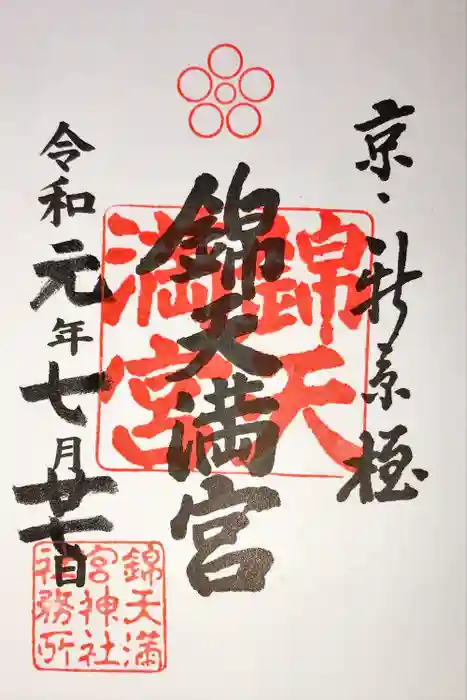 京・新京極
錦天満宮
錦天
満宮
令和元年七月廿七日
錦天満
宮神社
社務所